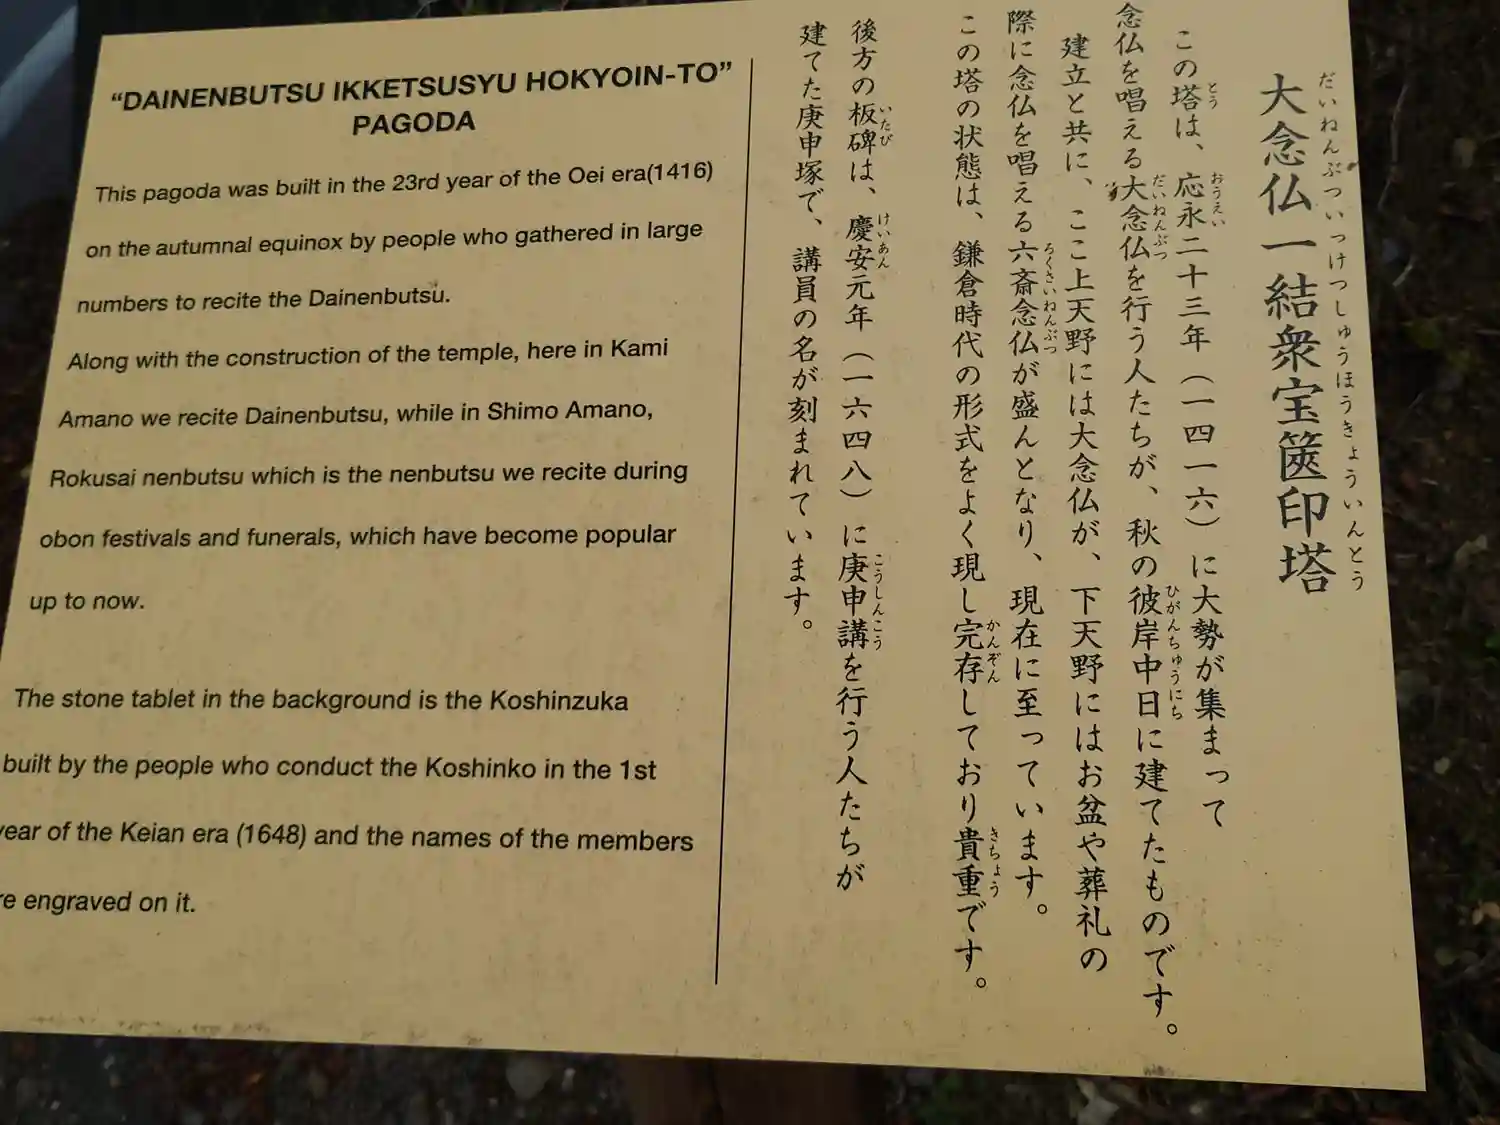 大念仏一結衆宝篋印塔
だいねんぶついっけつしゅうほうきょういんとう
この塔は、応永二十三年（一四一六）に大勢が集まって
とう
おうえい
念仏を唱える大念仏を行う人たちが、秋の彼岸中日に建てたものです。
だいねんぶつ
ひがんちゅうにち
建立と共に、ここ上天野には大念仏が、下天野にはお盆や葬礼の
際に念仏を唱える六斎念仏が盛んとなり、現在に至っています。
ろくさいねんぶつ
この塔の状態は、鎌倉時代の形式をよく現し完存しており貴重です。
かんぞん
きちょう
後方の板碑は、慶安元年（一六四八）に庚申講を行う人たちが
いたび
けいあん
こうしんこう
建てた庚申塚で、講員の名が刻まれています。
“DAINENBUTSU IKKETSUSYU HOKYOIN-TO”
PAGODA
This pagoda was built in the 23rd year of the Oei era(1416)
on the autumnal equinox by people who gathered in large
numbers to recite the Dainenbutsu.
Along with the construction of the temple, here in Kami
Amano we recite Dainenbutsu, while in Shimo Amano,
Rokusai nenbutsu which is the nenbutsu we recite during
obon festivals and funerals, which have become popular
up to now.
The stone tablet in the background is the Koshinzuka
built by the people who conduct the Koshinko in the 1st
year of the Keian era (1648) and the names of the members
re engraved on it.